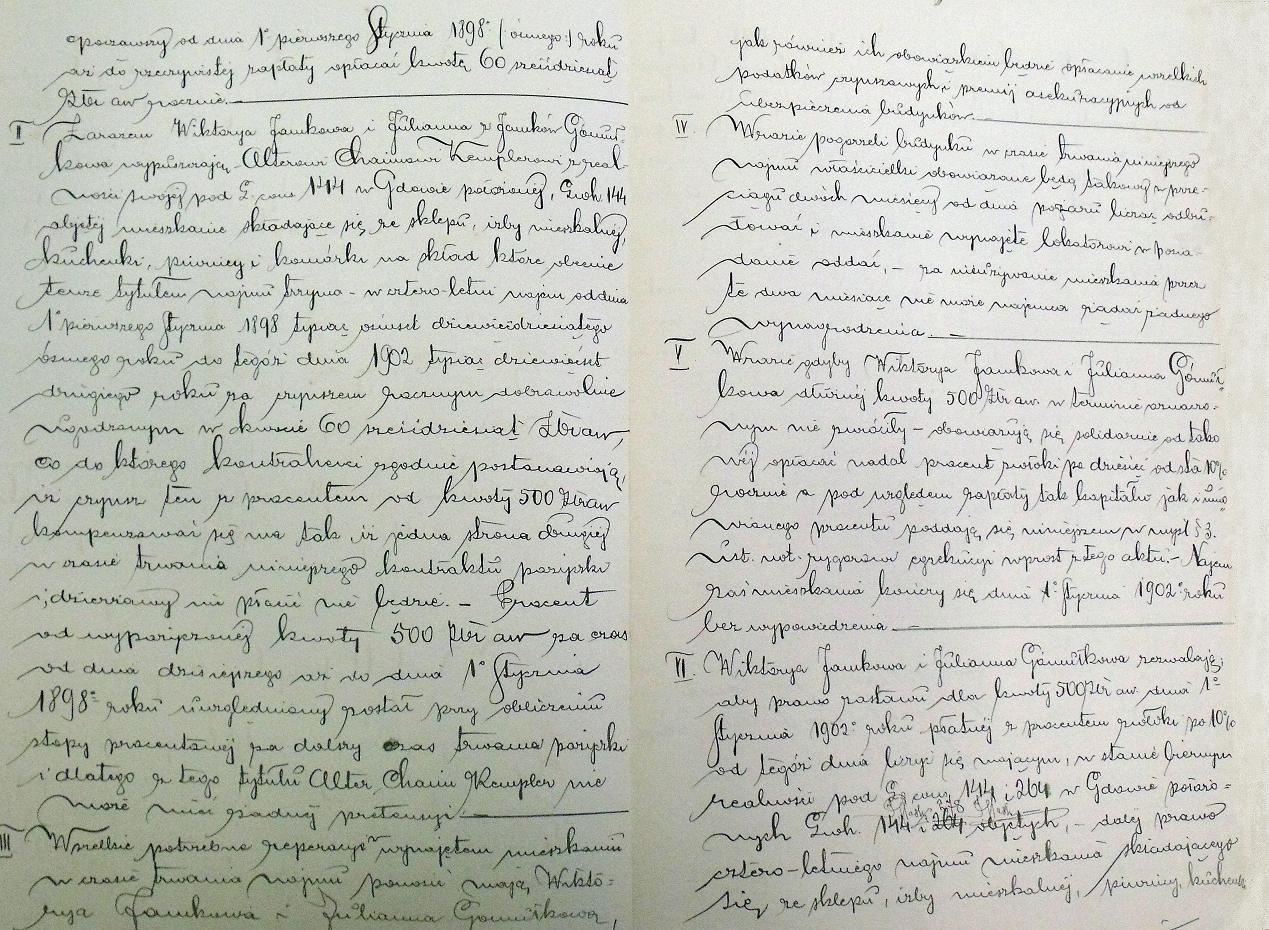 począwszy od dnia 1º pierwszego Stycznia 1898º (: ósmego :) roku
aż do rzeczywistej zapłaty opłacać kwotę 60 sześćdziesiąt
Złr aw rocznie.
II Zarazem Wiktorya Jamkowa i Julianna z Jamków Gómuł-
kowa wypuszczają Alterowi Chaimowi Kemplerowi z real-
ności swojej pod L. cons 144 w Gdowie położonej, Lwh. 144
objętej mieszkanie składające się ze sklepu, izby mieszkalnej,
kuchenki, piwnicy i komórki na skład które obecnie
tenże tytułem najmu trzyma - w cztero-letni najem od dnia
1º pierwszego Stycznia 1898 tysiąc ośmset dziewięćdziesiątego
ósmego roku do tegóż dnia 1902 tysiąc dziewięćset
drugiego roku za czynszem rocznym dobrowolnie
ugodzonym w kwocie 60 sześćdziesiąt Złr aw,
co do którego kontrahenci zgodnie postanawiają,
iż czynsz ten z procentem od kwoty 500 Złr aw
kompenzować się ma tak, iż jedna strona drugiej
w czasie trwania niniejszego kontraktu pożyczki
i dzierżawy nic płacić nie będzie. - Procent
od wypożyczonej kwoty 500 Złr aw za czas
od dnia dzisiejszego aż do dnia 1º Stycznia
1898º roku uwzględniony został przy obliczeniu
stopy procentowej za dalszy czas trwania pożyczki
i dlatego z tego tytułu Alter Chaim Kempler nie
może mieć żadnej pretensyi.
III Wszelkie potrzebne reperacye w wynajętem mieszkaniu
w czasie trwania najmu ponosić mają Wikto-
rya Jamkowa i Julianna Gomułkowa,
jak również ich obowiązkiem będzie opłacanie wszelkich
podatków czynszowych i premij asekuracyjnych od
ubezpieczenia budynków.
IV W razie pogorzeli budynku w czasie trwania niniejszego
najmu właścicielki obowiązane będą takowy w prze-
ciągu dwóch miesięcy od dnia pożaru licząc odbu-
dować i mieszkanie wynajęte lokatorowi w posia-
danie oddać, - za nieużywanie mieszkania przez
te dwa miesiące nie może najemca żądać żadnego
wynagrodzenia.
V W razie gdyby Wiktorya Jamkowa i Julianna Gómuł-
kowa dłużnej kwoty 500 Złr aw. w terminie oznaczo-
nym nie zwróciły - obowiązują się solidarnie od tako
wej opłacać nadal procent zwłoki po dziesięć od sta 10%
rocznie a pod względem zapłaty tak kapitału jak i umó
wionego procentu poddają się niniejszem w myśl § 3.
Ust. not. rygorowi egzekucyi wprost z tego aktu. - Najem
zaś mieszkania kończy się dnia 1º Stycznia 1902º roku
bez wypowiedzenia.
VI Wiktorya Jamkowa i Julianna Gómułkowa zezwalają,
aby prawo zastawu dla kwoty 500 Złr aw. dnia 1º
Stycznia 1902º roku płatnej z procentem zwłoki po 10%
od tegóż dnia liczyć się mającym, w stanie biernym
realności pod L. cons. 144 i 264 w Gdowie położo-
nych Lwh. 144 i 264 objętych, - dalej prawo
cztero-letniego najmu mieszkania składającego
się ze sklepu, izby mieszkalnej, piwnicy, kuchenki